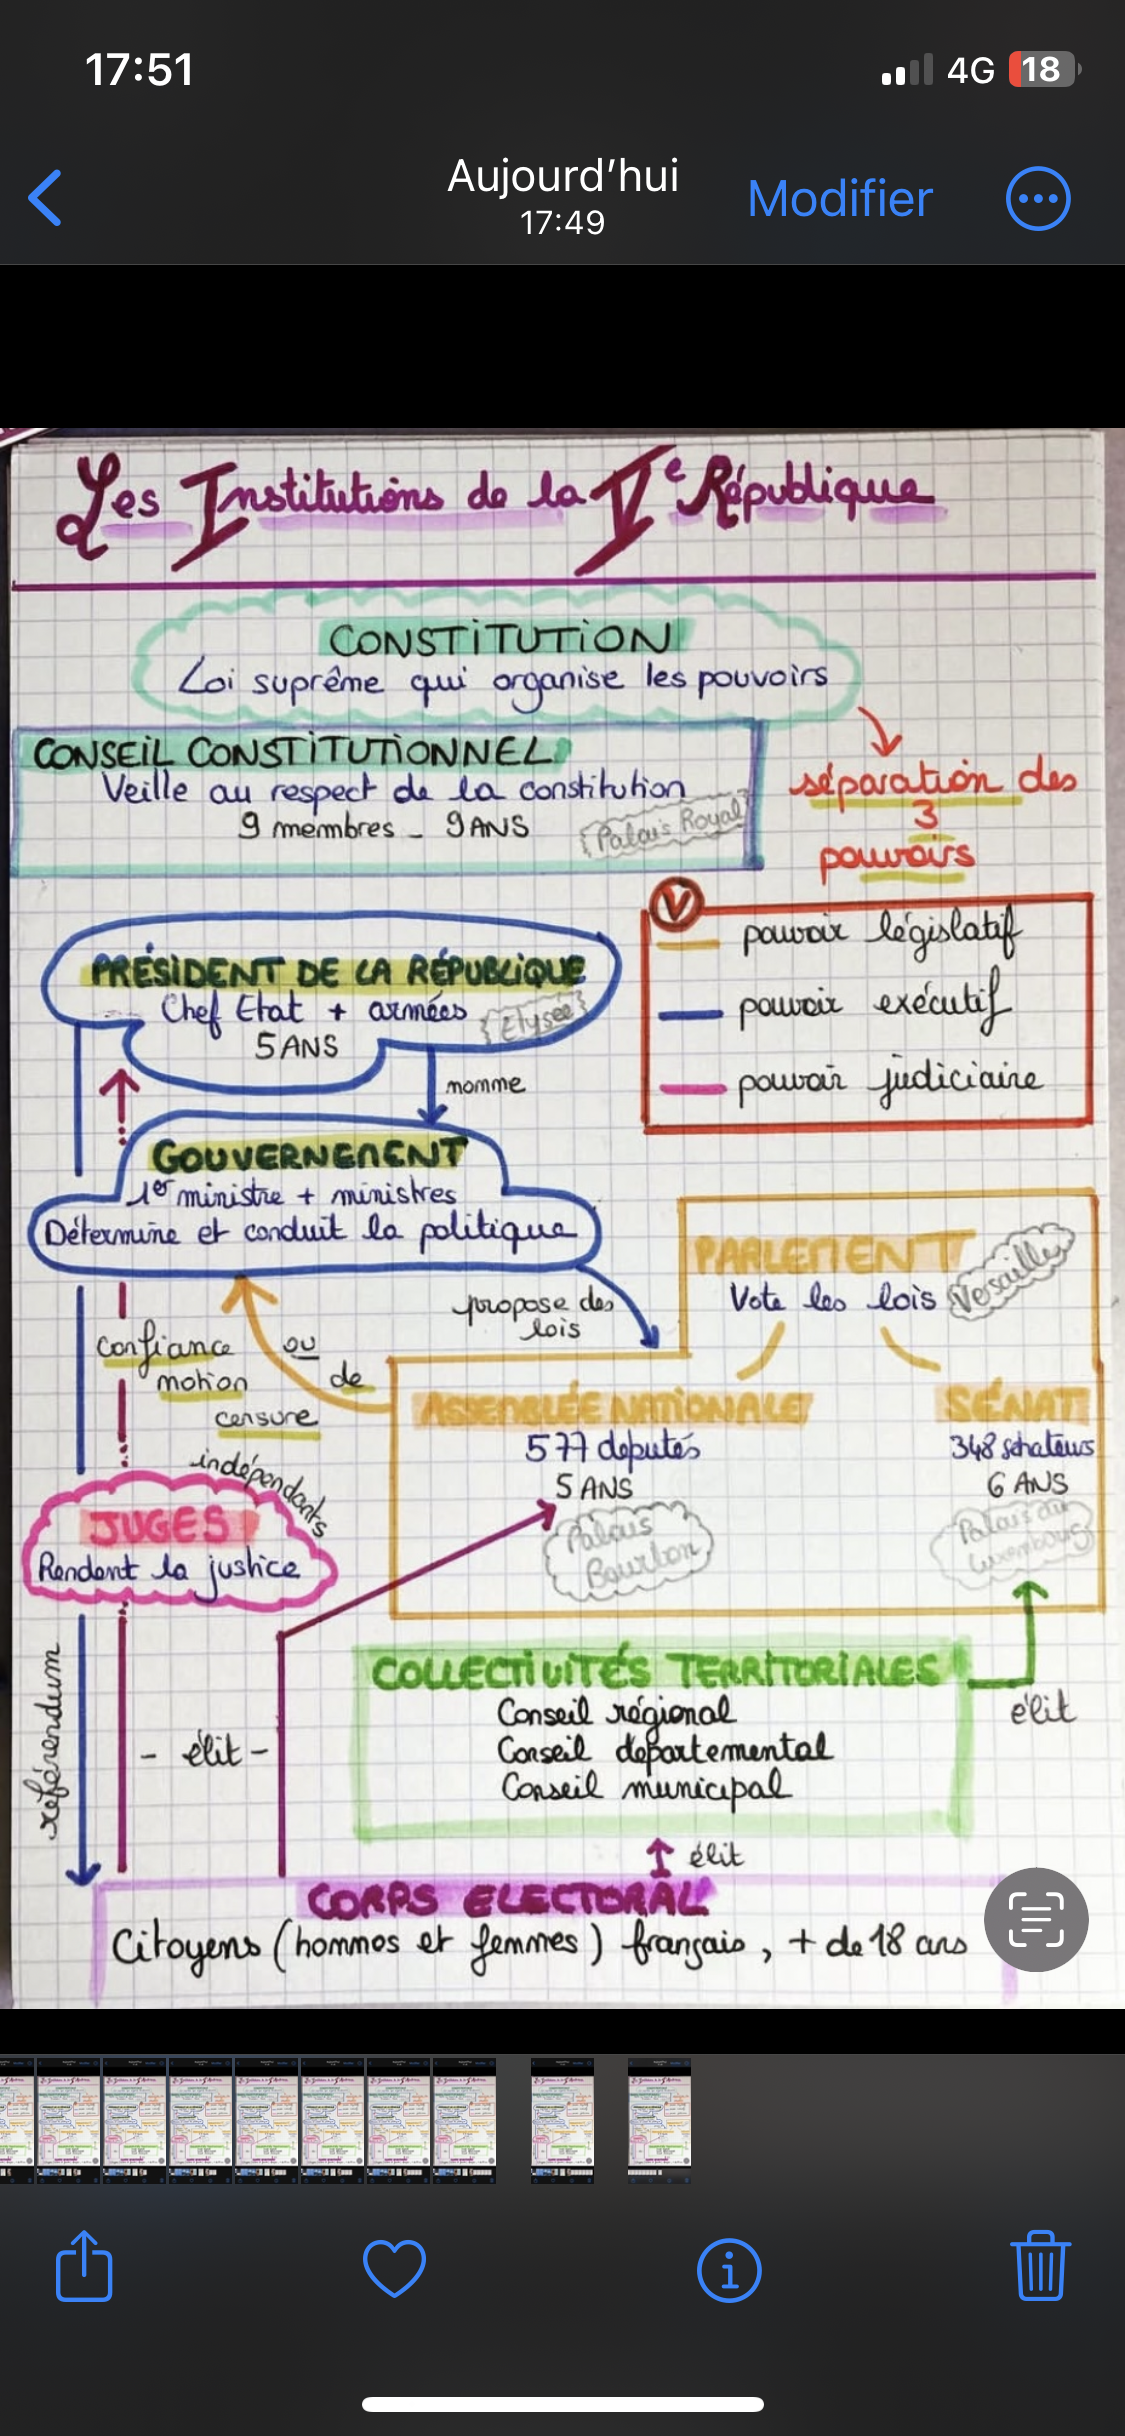 17:51
4G 18
Aujourd'hui
17:49
Modifier
Les Institutions de la Ve République
CONSTITUTION
Loi suprême qui organise les pouvoirs
CONSEIL CONSTITUTIONNEL
Veille au respect de la constitution
9 membres - 9 ANS
Palais Royal
séparation des
3
pouvoirs
V
pouvoir législatif
pouvoir exécutif
pouvoir judiciaire
PRÉSIDENT DE LA RÉPUBLIQUE
Chef Etat + armées
Elysée
5 ANS
nomme
GOUVERNEMENT
1er ministre + ministres
Détermine et conduit la politique
propose des
lois
PARLEMENT
Versailles
Vote les lois
confiance ou
motion de
censure
ASSEMBLÉE NATIONALE
577 députés
5 ANS
Palais
Bourbon
SÉNAT
348 sénateurs
6 ANS
Palais du
Luxembourg
indépendants
JUGES
Rendent la justice
COLLECTIVITÉS TERRITORIALES
Conseil régional
Conseil départemental
Conseil municipal
élit
référendum
- élit -
élit
CORPS ELECTORAL
Citoyens (hommes et femmes) français, + de 18 ans